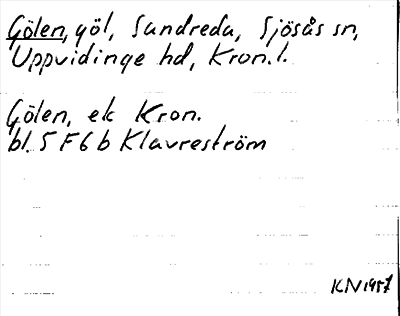 Gölen, göl, Sandreda, Sjösås sn,
Uppvidinge hd, Kron. l.
Gölen, ek Kron.
bl. 5 F 6 b Klavreström